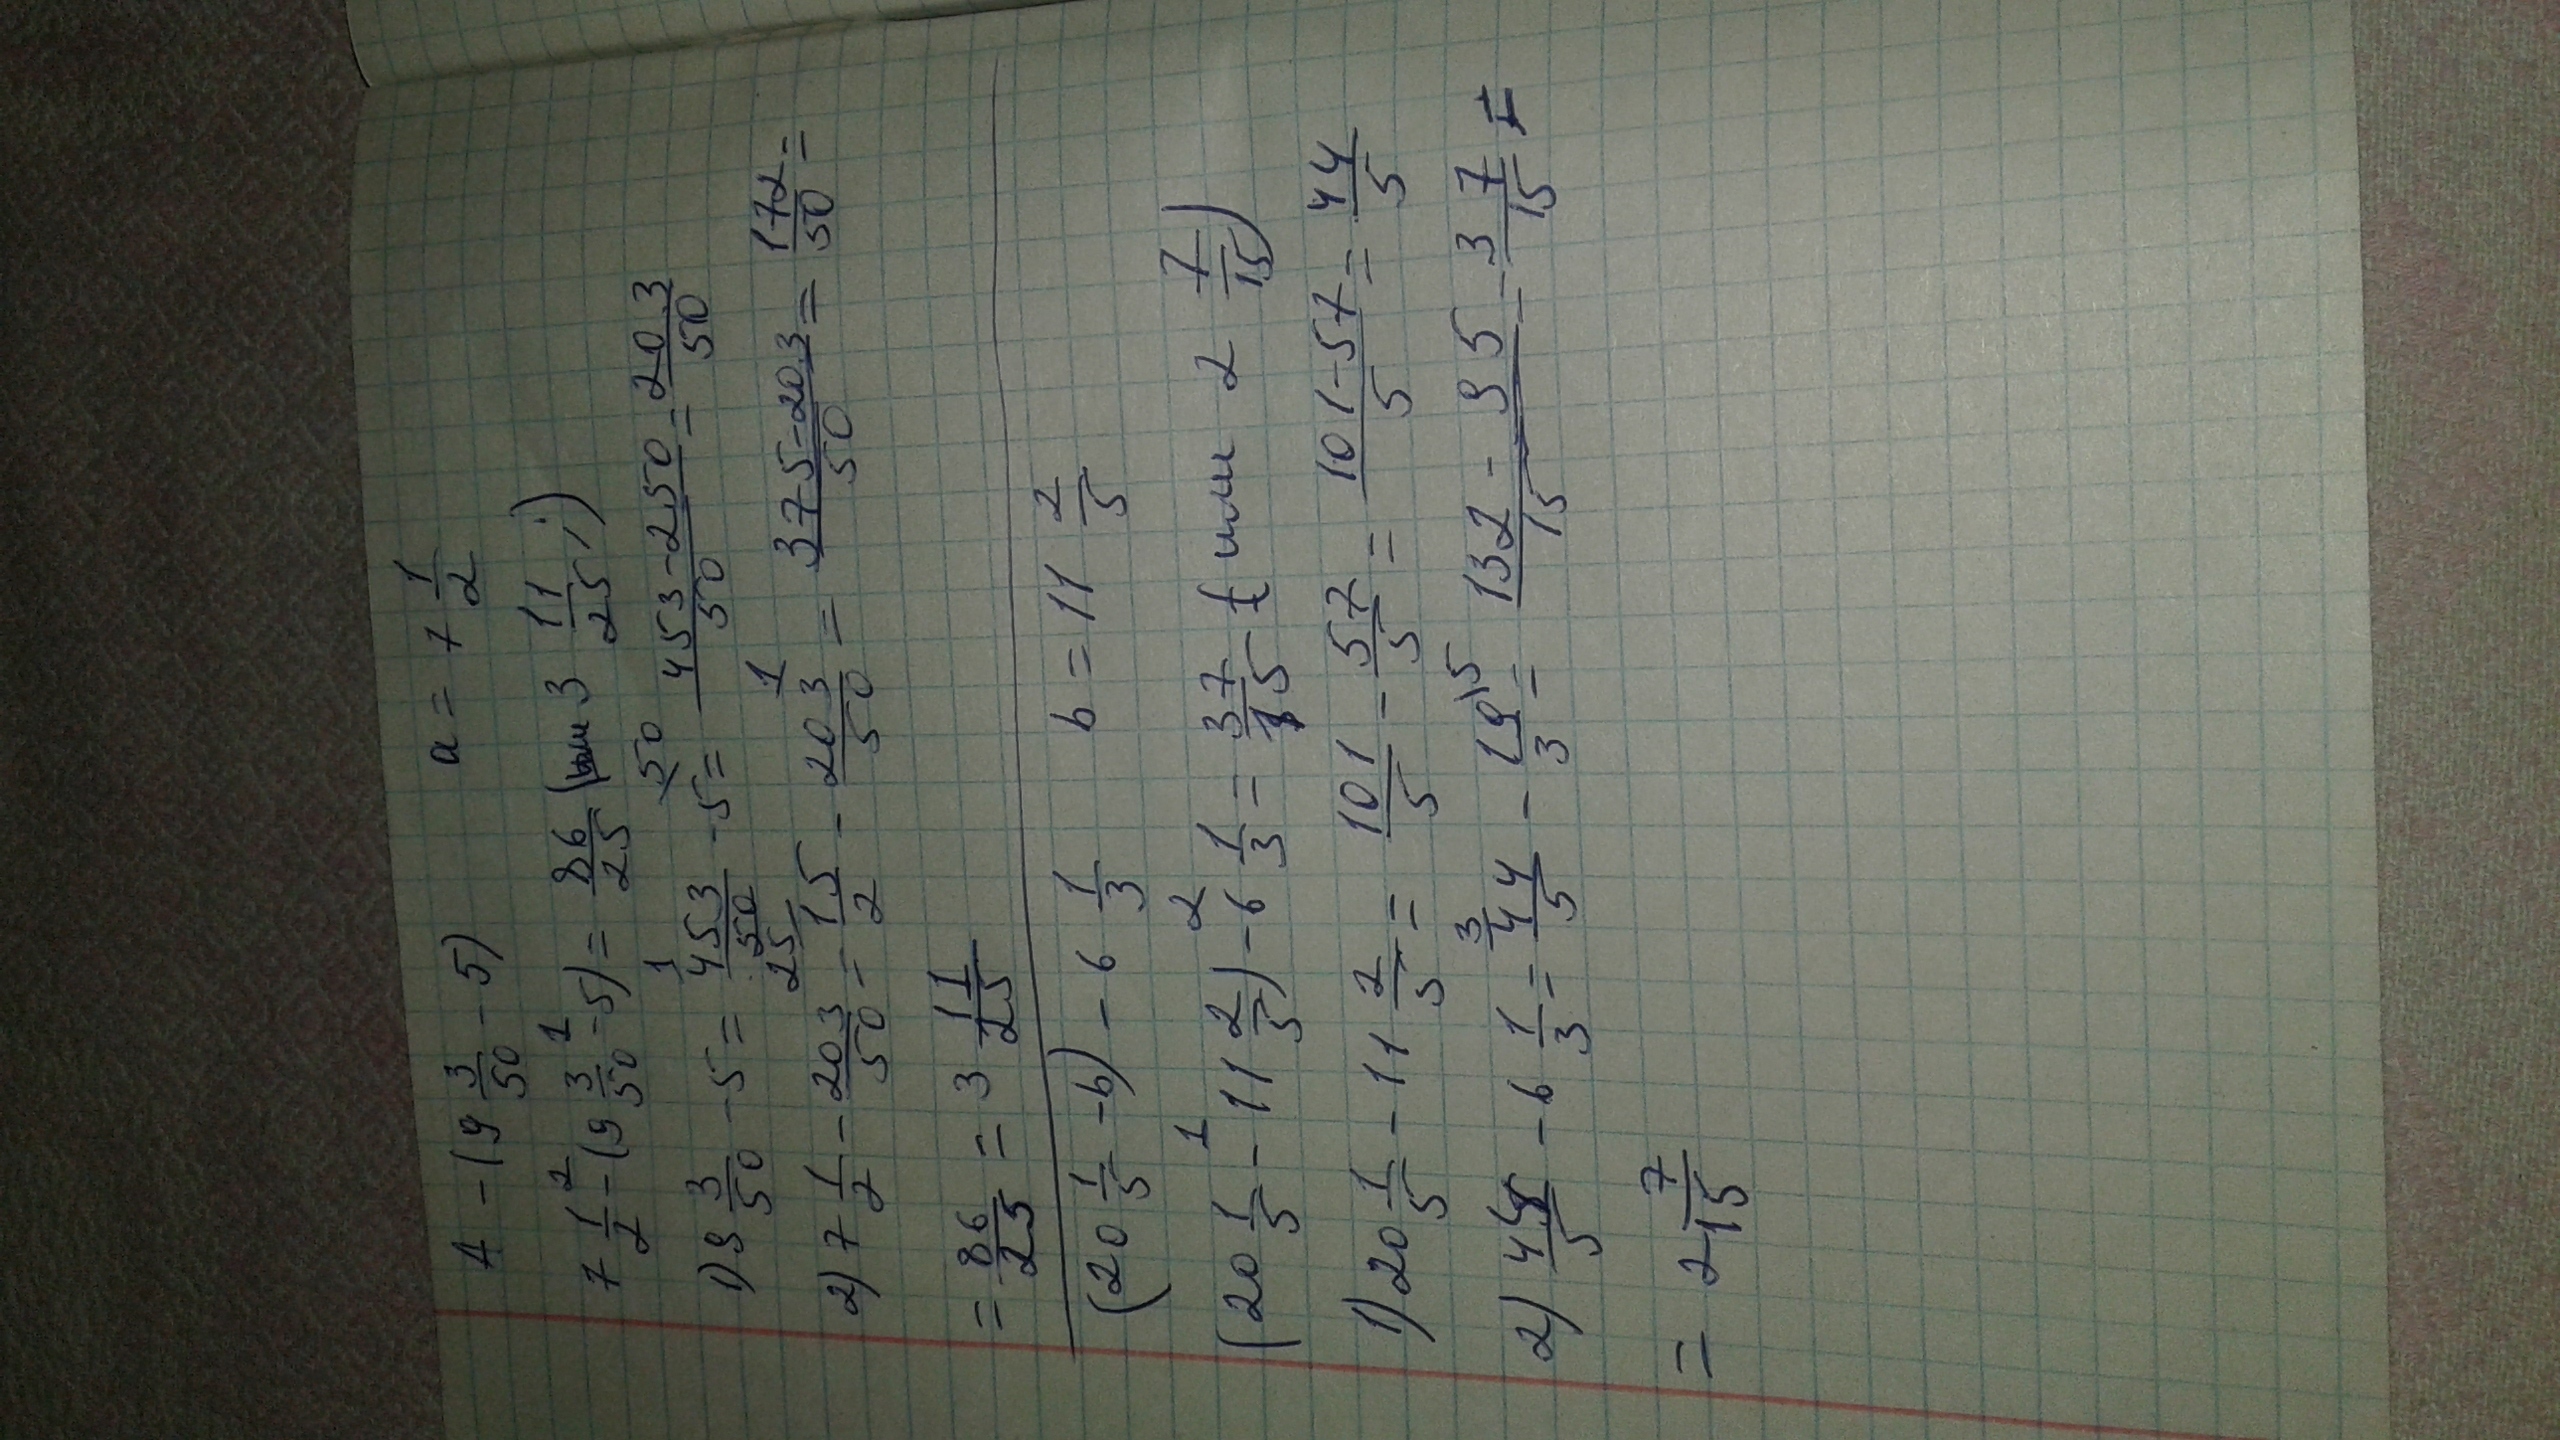 A - (9 3/50 - 5) a = 7 1/2
7 1/2 - (9 3/50 - 5) = 86/25 (или 3 11/25;)
1) 9 3/50 - 5 = 453/50 - 5 = 453-250/50 = 203/50
2) 7 1/2 - 203/50 = 15/2 - 203/50 = 375-203/50 = 172/50 =
= 86/25 = 3 11/25
(20 1/5 - b) - 6 1/3 b = 11 2/5
(20 1/5 - 11 2/5) - 6 1/3 = 37/15 (или 2 7/15)
1) 20 1/5 - 11 2/5 = 101/5 - 57/5 = 101-57/5 = 44/5
2) 44/5 - 6 1/3 = 44/5 - 19/3 = 132-95/15 = 37/15 =
= 2 7/15